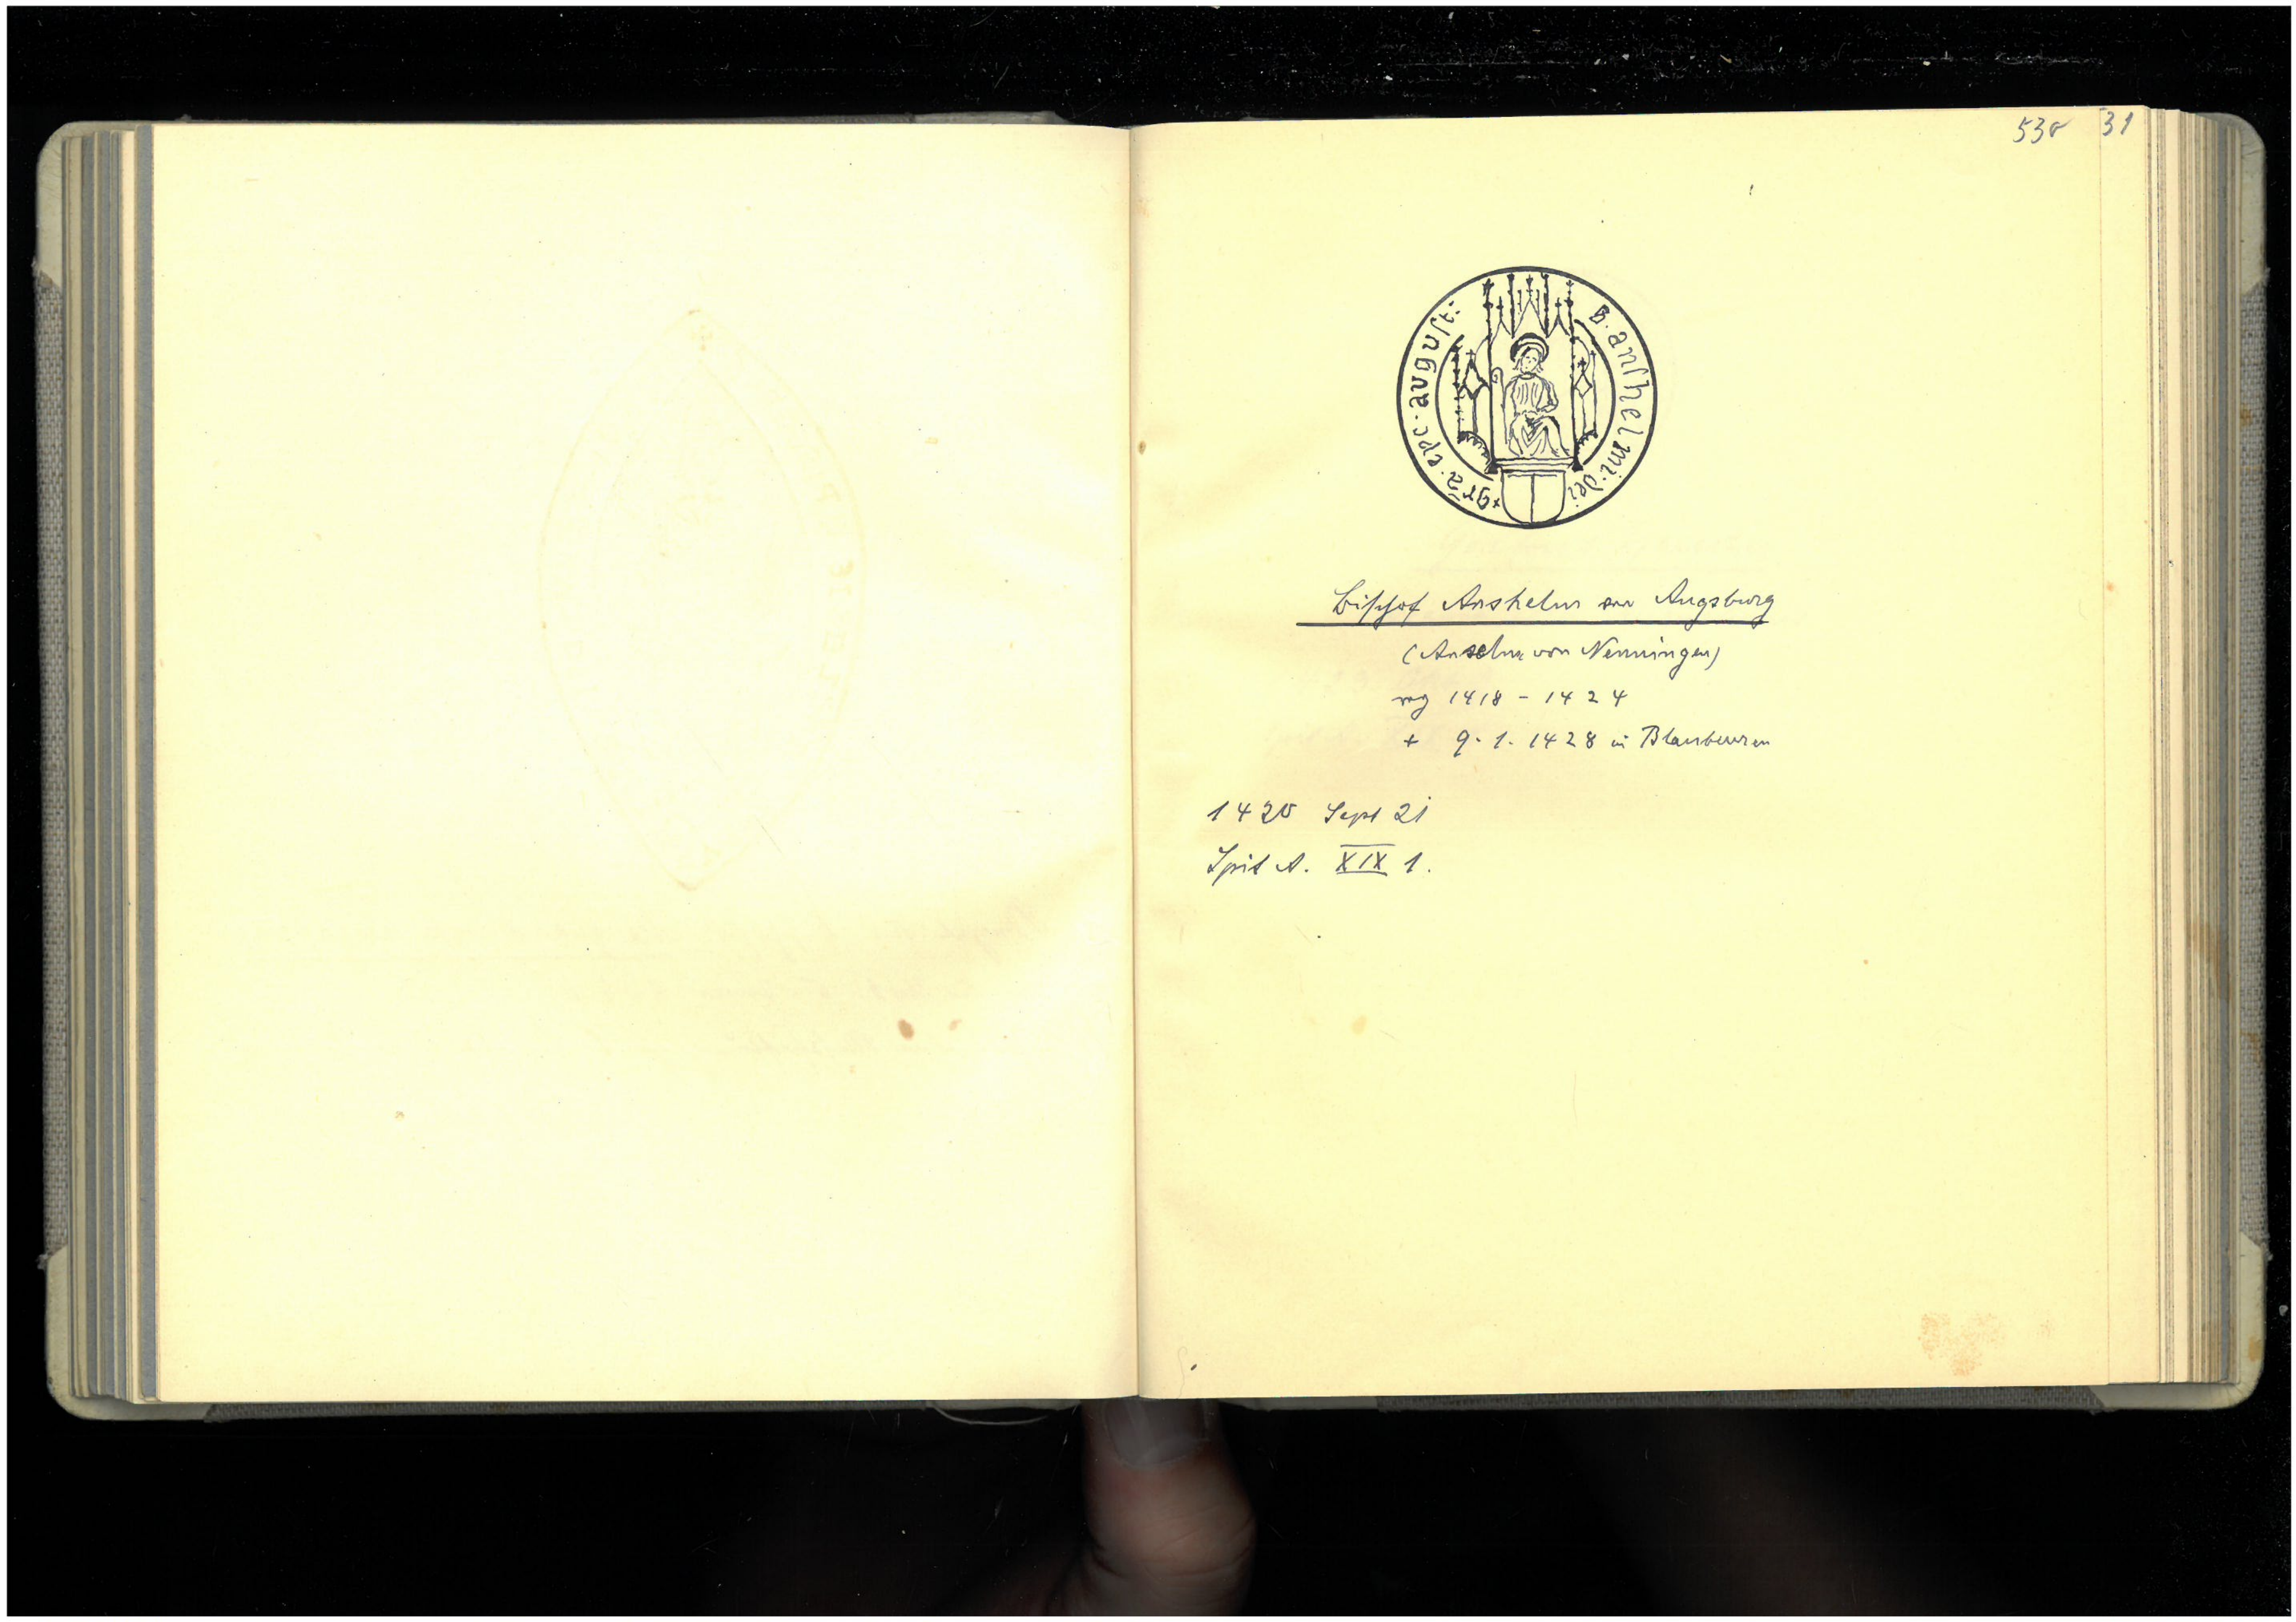 530 31
S. anſhelmi · dei + grā · epc · auguſt :
Biſchof Anshelm von Augsburg
(Anselm von Nenningen)
reg 1418 - 1424
+ 9. 1. 1428 in Blaubeuren
1420 Sept 21
Spit A. XIX 1.